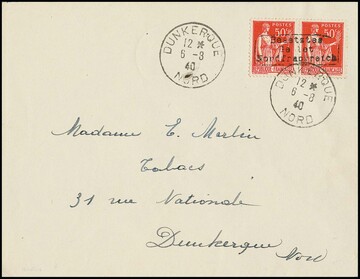 DUNKERQUE
12 *
6-8
40
NORD
50c
50c
Besetztes
Gebiet
Nordfrankreich
DUNKERQUE
12 *
6-8
40
NORD
Madame E. Merlin
Tabacs
31 rue Nationale
Dunkerque
Nord